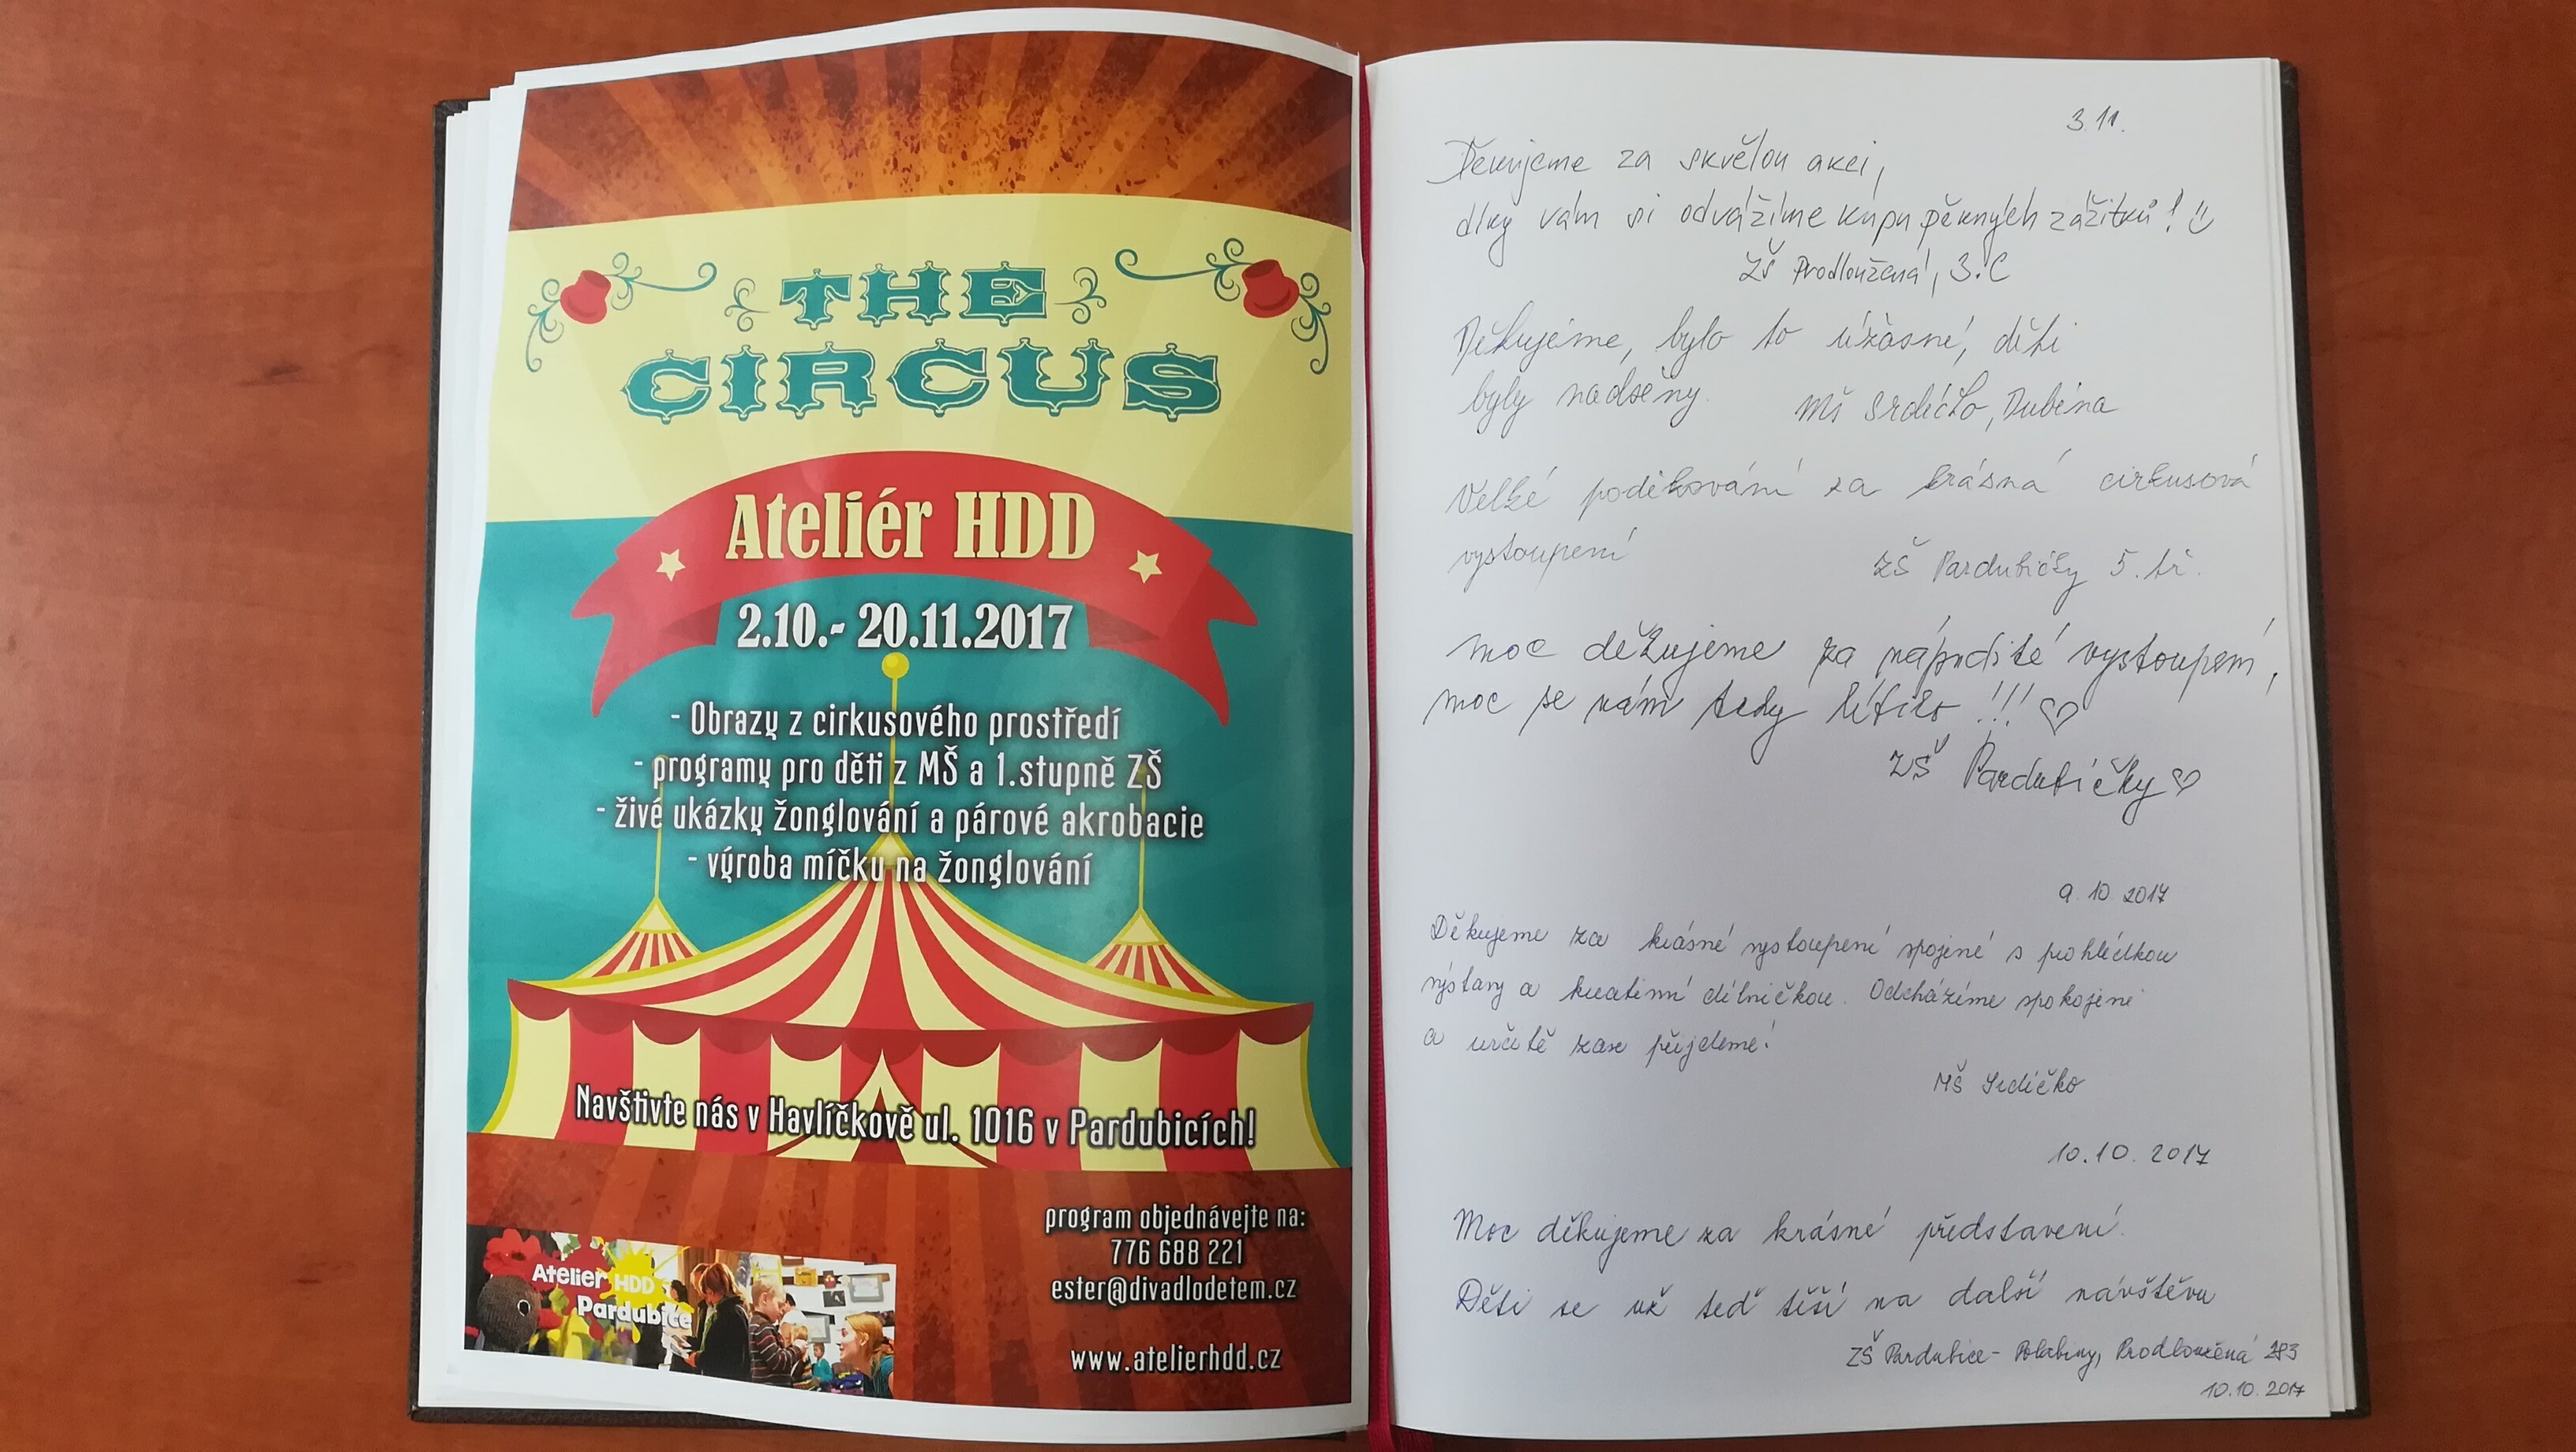 THE
CIRCUS
Ateliér HDD
2.10.- 20.11.2017
- Obrazy z cirkusového prostředí
- programy pro děti z MŠ a 1.stupně ZŠ
- živé ukázky žonglování a párové akrobacie
- výroba míčku na žonglování
Navštivte nás v Havlíčkově ul. 1016 v Pardubicích!
program objednávejte na:
776 688 221
ester@divadlodetem.cz
www.atelierhdd.cz
Atelier HDD
Pardubice
3.11.
Děkujeme za skvělou akci,
díky vám si odvážíme kupu pěkných zážitků!
ZŠ Prodloužená, 3.C
Děkujeme, bylo to úžasné, děti
byly nadšeny. MŠ Srdíčko, Dubina
Velké poděkování za krásná cirkusová
vystoupení
ZŠ Pardubičky 5. tř.
moc děkujeme za nápadité vystoupení,
moc se nám tady líbilo!!!
ZŠ Pardubičky
9. 10 2017
Děkujeme za krásné vystoupení spojené s prohlídkou
výstavy a kreativní dílničkou. Odcházíme spokojeni
a určitě zase přijdeme!
MŠ Srdíčko
10.10. 2017
Moc děkujeme za krásné představení.
Děti se už teď těší na další návštěvu
ZŠ Pardubice - Polabiny, Prodloužená 283
10.10. 2017